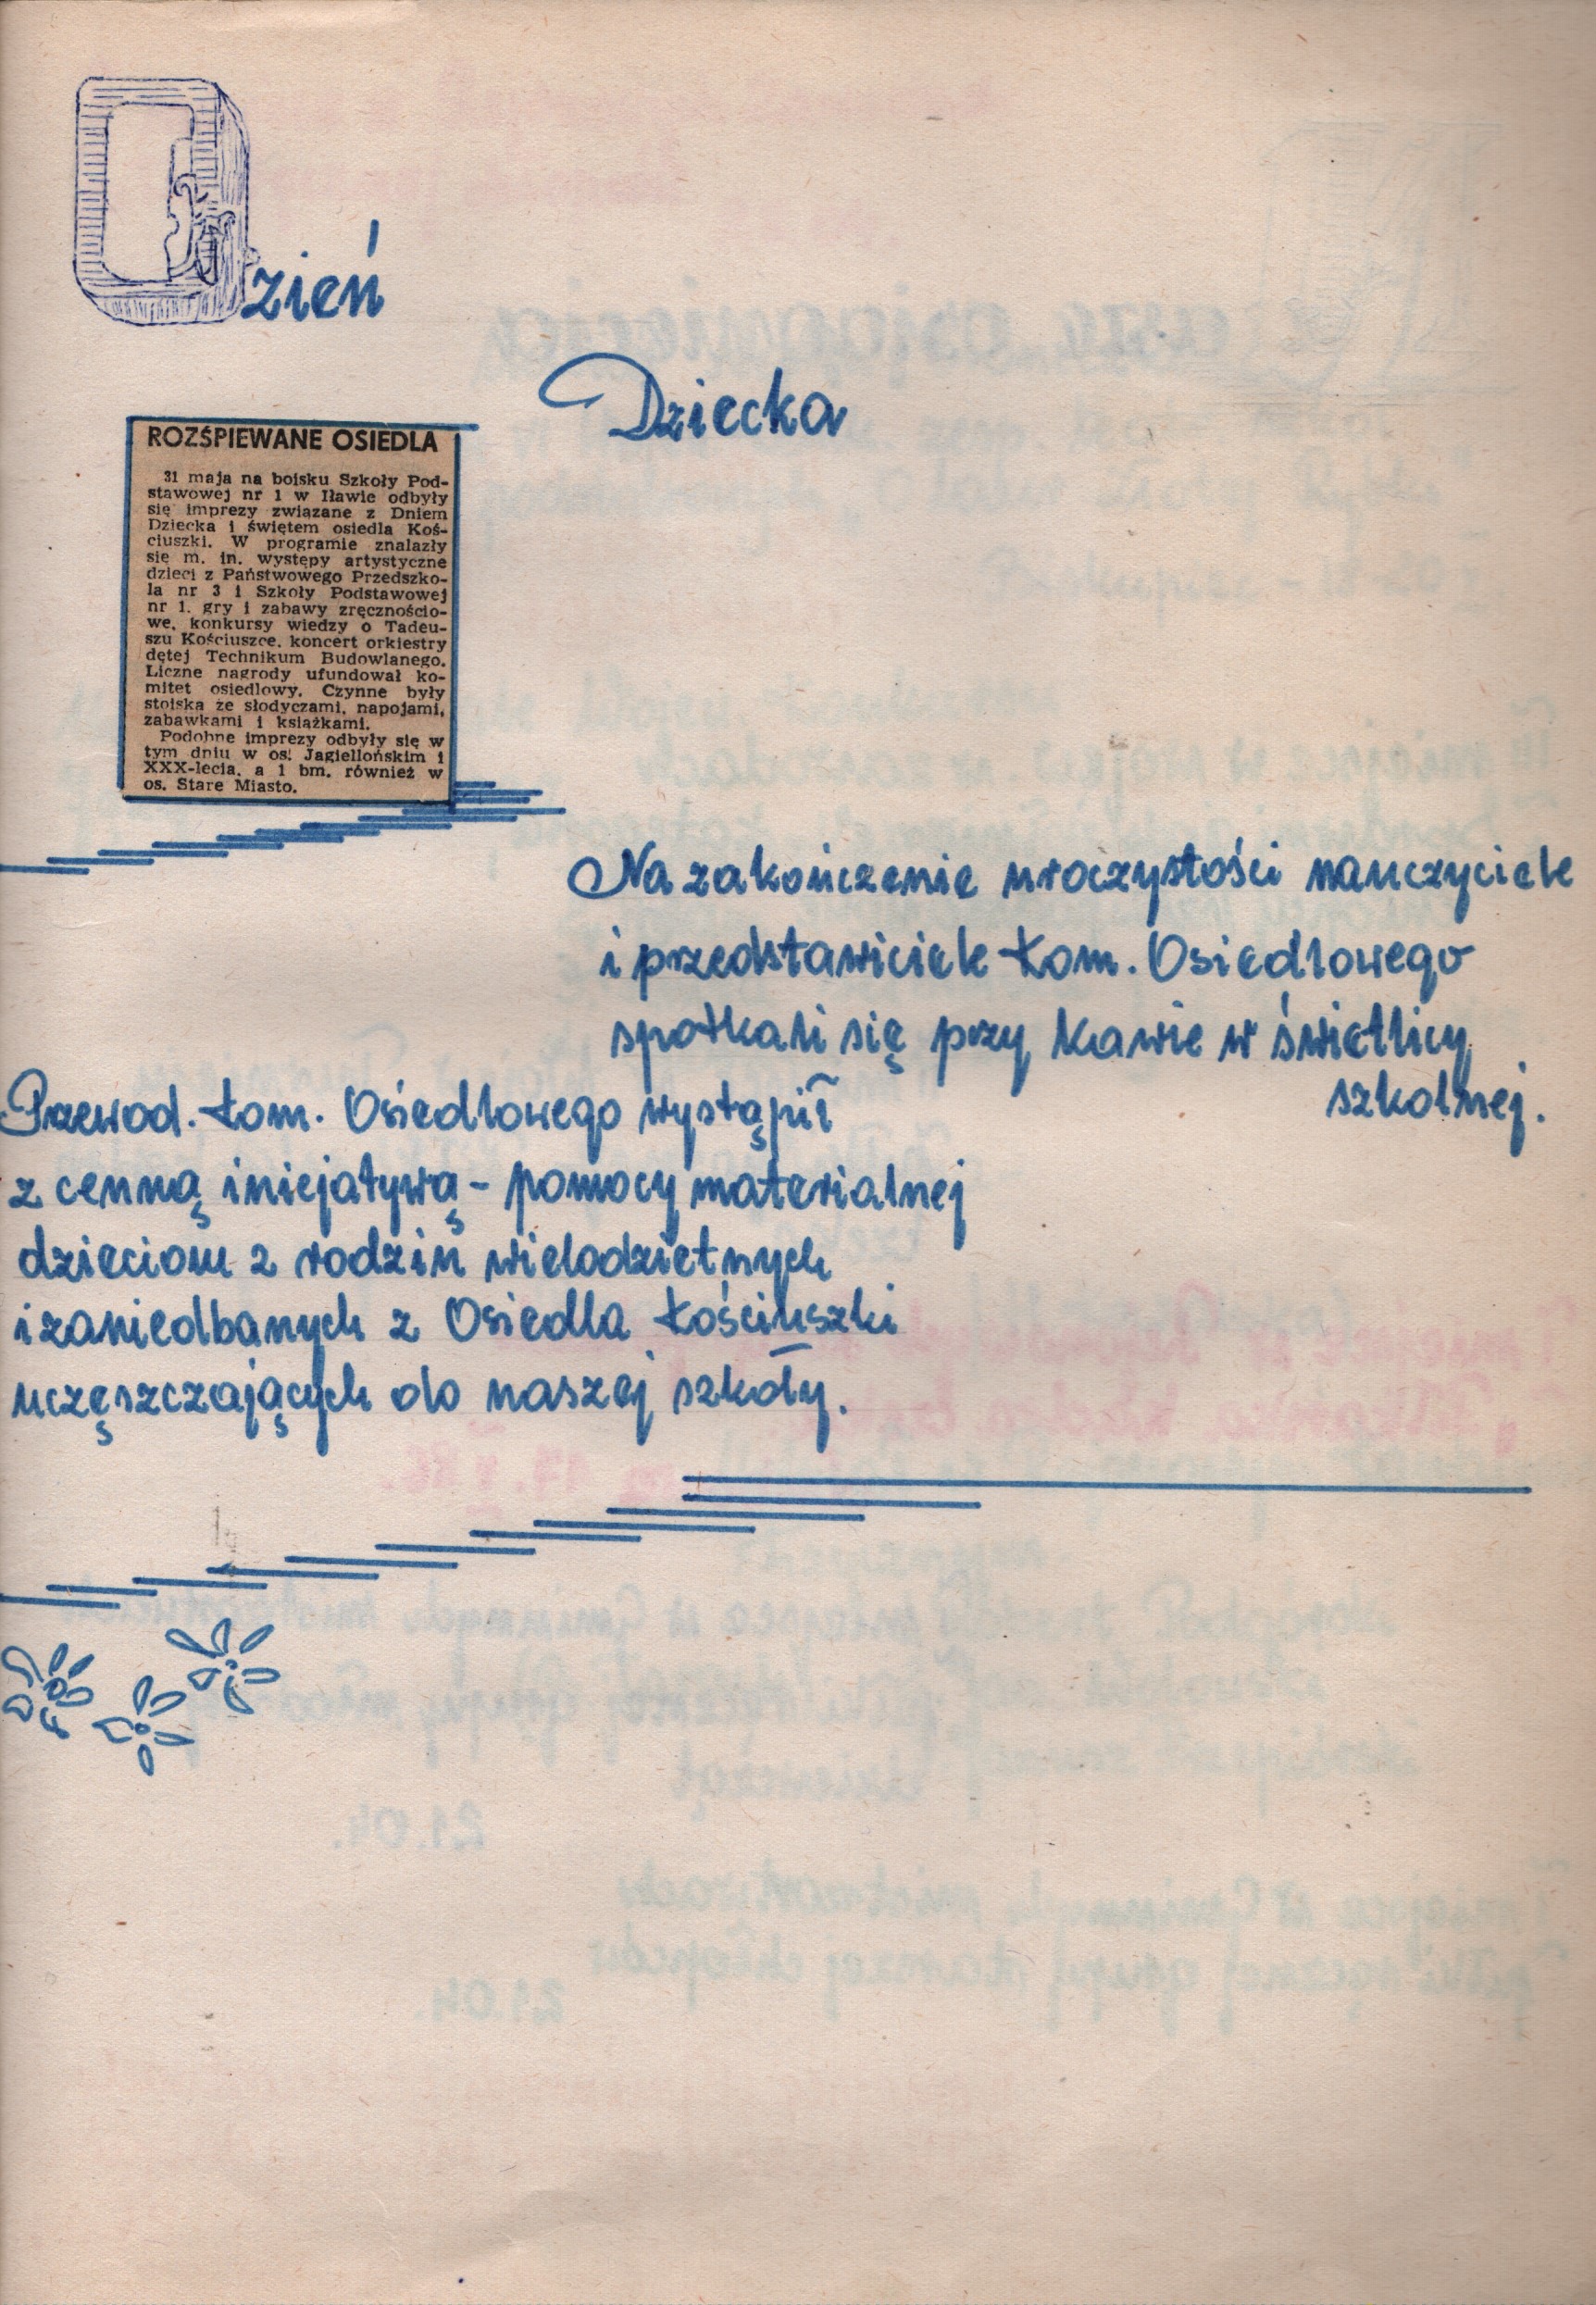 Dzień
Dziecka
ROZŚPIEWANE OSIEDLA
31 maja na boisku Szkoły Pod-
stawowej nr 1 w Iławie odbyły
się imprezy związane z Dniem
Dziecka i świętem osiedla Koś-
ciuszki. W programie znalazły
się m. in. występy artystyczne
dzieci z Państwowego Przedszko-
la nr 3 i Szkoły Podstawowej
nr 1. gry i zabawy zręcznościo-
we, konkursy wiedzy o Tadeu-
szu Kościuszce, koncert orkiestry
dętej Technikum Budowlanego.
Liczne nagrody ufundował ko-
mitet osiedlowy. Czynne były
stoiska ze słodyczami, napojami,
zabawkami i książkami.
Podobne imprezy odbyły się w
tym dniu w os. Jagiellońskim i
XXX-lecia, a 1 bm. również w
os. Stare Miasto.
Na zakończenie uroczystości nauczyciele
i przedstawiciele Kom. Osiedlowego
spotkali się przy kawie w świetlicy
szkolnej.
Przewod. Kom. Osiedlowego wystąpił
z cenną inicjatywą - pomocy materialnej
dzieciom z rodzin wielodzietnych
i zaniedbanych z Osiedla Kościuszki
uczęszczających do naszej szkoły.